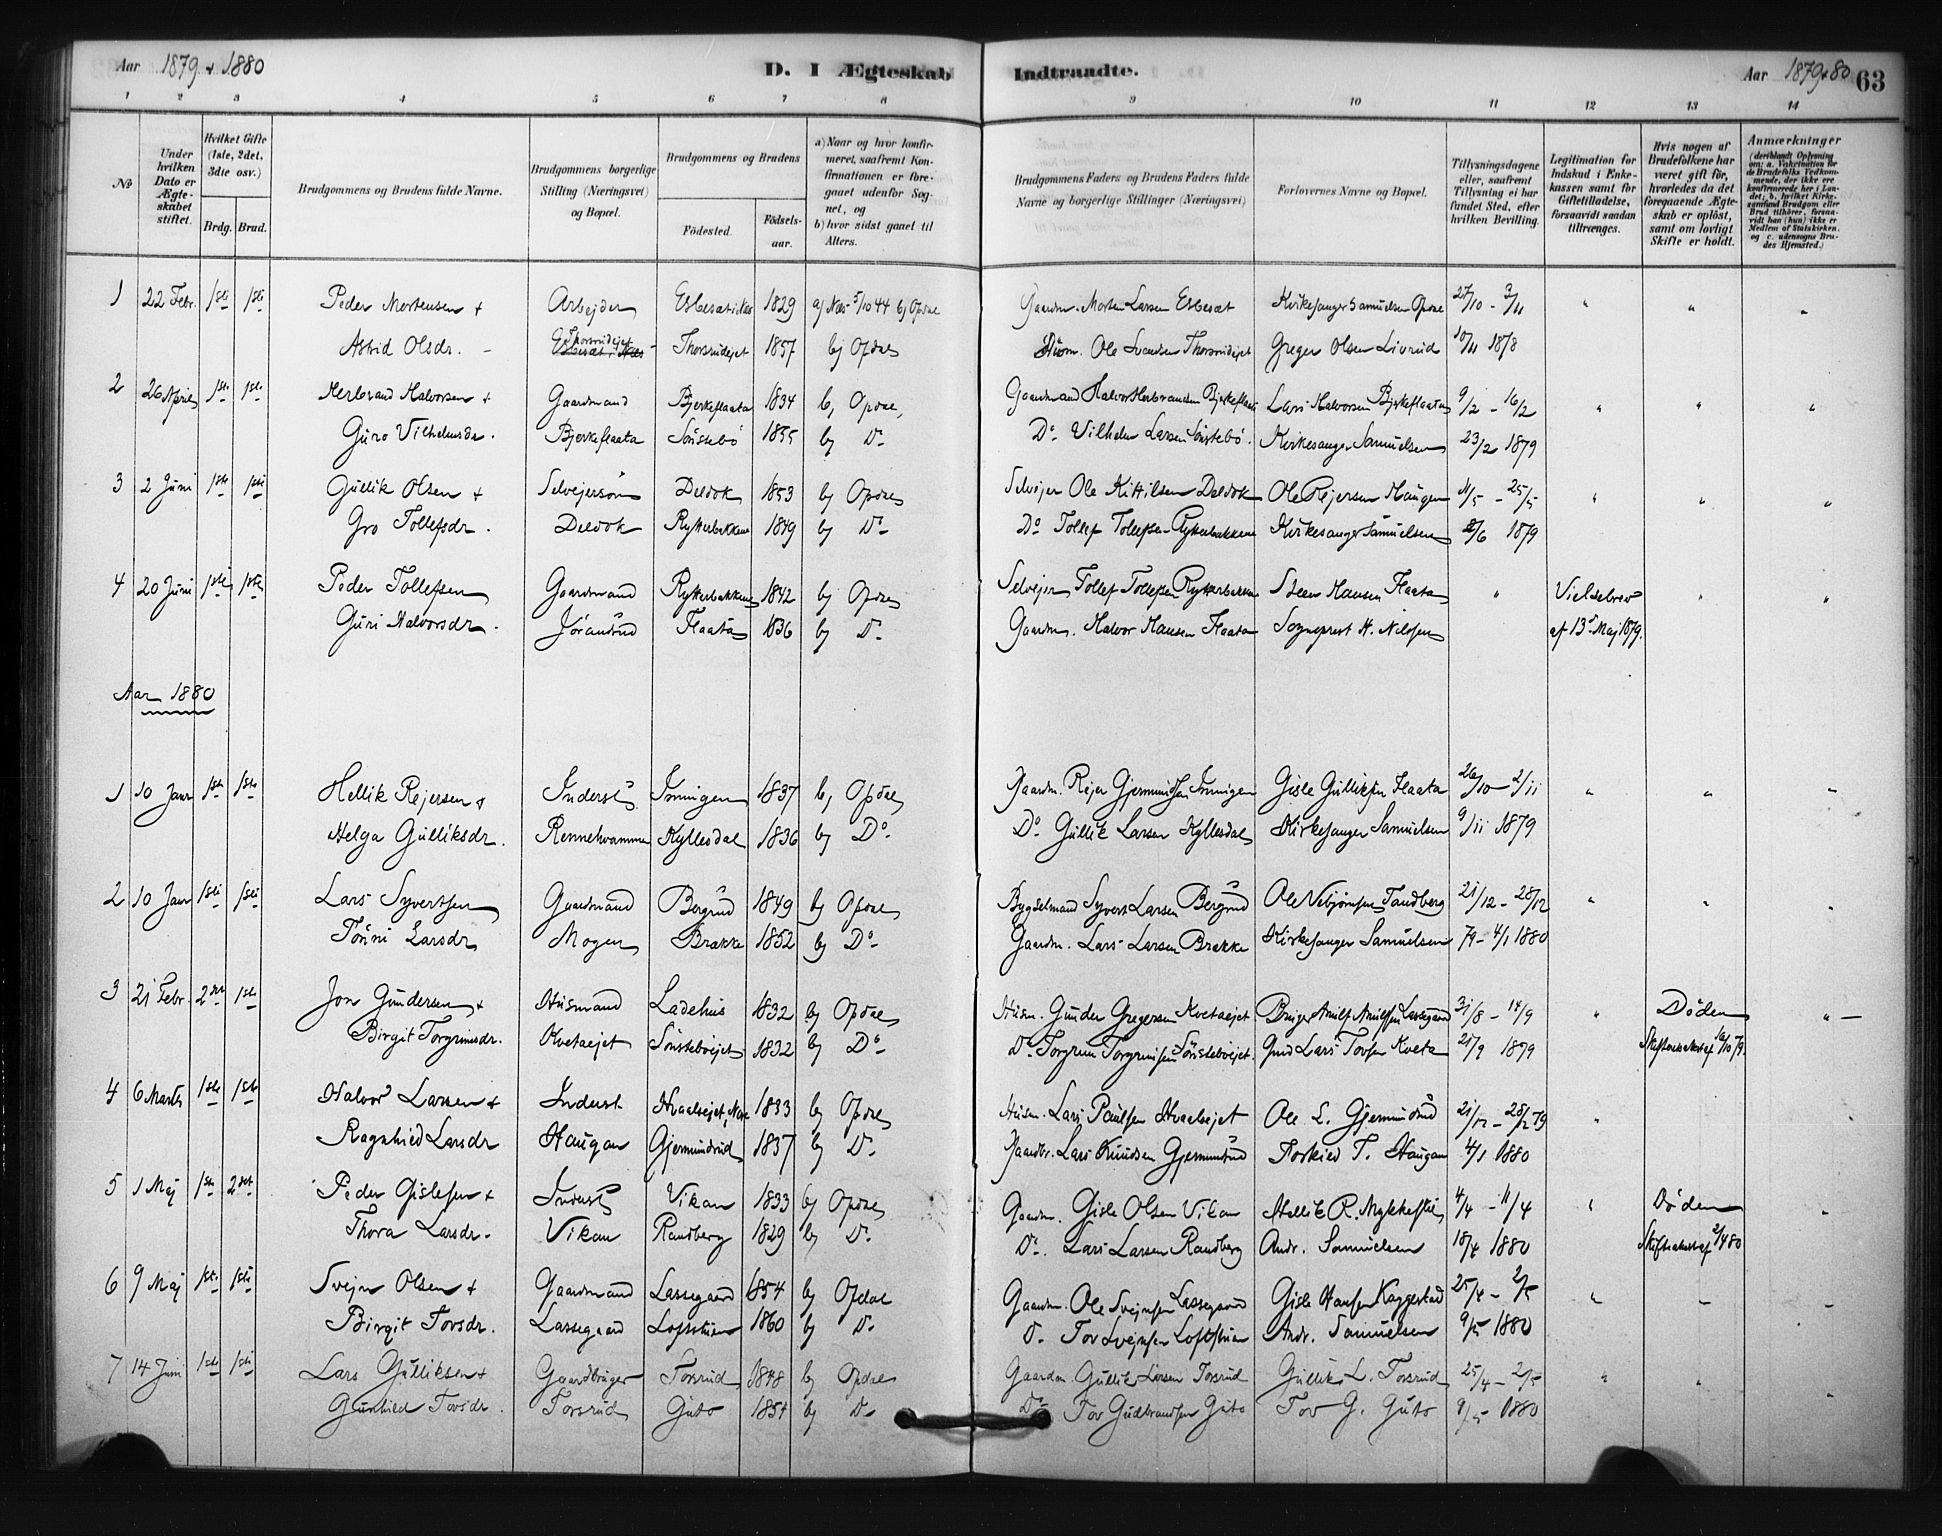 Aar 1879 + 1880 D. I Ægteskab Indtraadte. Aar 1879+80 63
1 2 3 4 5 6 7 8 9 10 11 12 13 14
No
Under hvilken Dato er Ægteskabet stiftet.
Hvilket Gifte (1ste, 2det, 3die osv.)
Brdg. Brud.
Brudgommens og Brudens fulde Navne.
Brudgommens borgerlige Stilling (Næringsvei) og Bopæl.
Brudgommens og Brudens
Fødested. Fødselsaar.
a) Naar og hvor konfirmeret, saafremt Konfirmationen er foregaaet udenfor Sognet, og
b) hvor sidst gaaet til Alters.
Brudgommens Faders og Brudens Faders fulde Navne og borgerlige Stillinger (Næringsvei)
Forlovernes Navne og Bopæl.
Tillysningsdagene eller, saafremt Tillysning ei har fundet Sted, efter hvilken Bevilling.
Legitimation for Indskud i Enkekassen samt for Giftetilladelse, forsaavidt saadan tiltrænges.
Hvis nogen af Brudefolkene har været gift før, hvorledes da det foregaaende Ægteskab er opløst, samt om lovligt Skifte er holdt.
Anmærkninger (deriblandt Oplysning om: a. Vakcination for de Brudefolks Vedkommende, der ikke ere konfirmerede her i Landet; b. hvilket Kirkesamfund Brudgom eller Brud tilhører, forsaavidt han (hun) ikke er Medlem af Statskirken. og c. udensogns Brudes Hjemsted.)
1 22 Febr. 1ste 1ste Peder Mortensen + Arbejder Esbesæt i Næs 1829 a) Næs 5/10 44 b) Opdal Gaardm. Morten Larsen Esbesæt Kirkesanger Samuelsen Opdal 27/10 - 3/11 " " "
Astrid Olsdr. - Thorsrudejet Thorsrudejet 1857 b) Opdal Husm. Ole Svendsen Thorsrudejet Greger Olsen Livrud 10/11 1878
2 26 April 1ste 1ste Herbrand Halvorsen + Gaardmand Bjerkeflaata 1834 b) Opdal Gaardmand Halvor Herbrandsen Bjerkeflaata Lars Halvorsen Bjerkeflaata 9/2 - 16/2 " " "
Guro Vilhelmsdr. Bjerkeflaata Sönstebö 1855 b) Do Do Vilhelm Larsen Sönstebö. Kirkesanger Samuelsen 23/2 1879
3 2 Juni 1ste 1ste Gullik Olsen + Selvejersön Deldok 1853 b) Opdal Selvejer Ole Kittilsen Deldok Ole Rejersen Haugen 11/5 - 25/5 " " "
Gro Tollefsdr. Deldok Rykkerbakkene 1849 b) Do Do Tollef Tollefsen Rykkerbakkene Kirkesanger Samuelsen 2/6 1879
4 20 Juni 1ste 1ste Peder Tollefsen Gaardmand Rykkerbakkene 1842 b) Opdal Selvejer Tollef Tollefsen Rykkerbakken Steen Hansen Flaata " Vielsebrev " "
Guri Halvorsdr. Jörandrud Flaata 1836 b) Do Gaardm. Halvor Hansen Flaata Sogneprest H. Nilssen af 13de Maj 1879.
Aar 1880
1 10 Janr 1ste 1ste Hellik Rejersen + Inderst Imingen 1837 b) Opdal Gaardm. Rejer Gjermundsen Imingen Gisle Gulliksen Flaata 26/10 - 2/11 " " "
Helga Gulliksdr. Rennehvammen Kyllesdal 1836 b) Do. Do. Gullik Larsen Kyllesdal Kirkesanger Samuelsen 9/11 1879
2 10 Janr 1ste 1ste Lars Syvertsen Gaardmand Bergrud 1849 b) Opdal Bygselmand Syvert Larsen Bergrud Ole Vebjörnsen Tandberg 21/12 - 28/12 " " "
Tönni Larsdr Mogen Brække 1852 b) Do Gaardm. Lars Larsen Brække Kirkesanger Samuelsen 79 - 4/1 1880
3 21 Febr. 2det 1ste Jon Gundersen + Husmand Ladehus 1832 b) Opdal Husm. Gunder Gregersen Kvetaejet Bruger Arnulf Arnulfsen Lassegaard 31/8 - 14/9 " Döden "
Birgit Torgrimsdr. Kvetaejet Sönstebøejet 1832 b) Do Do Torgrim Torgrimsen Sönstebøejet. Gmd Lars Torsen Kveta 21/9 1879 Skifteattest af 16/10 79.
4 6 Marts 1ste 1ste Halvor Larsen + Inderst Hvaalsejet, Nore 1833 b) Opdal Husm. Lars Paulsen Hvaalsejet Ole L. Gjermundrud 21/12 - 28/12 79 "
Ragnhild Larsdr Haugan Gjermundrud 1837 b) Do. Gaardbr. Lars Knudsen Gjermundrud Torkild T. Haugan 4/1 1880
5 1 Maj 1ste 2det Peder Gislesen + Inderst Vikan 1833 b) Opdal Gaardm. Gisle Olsen Vikan Hellik R. Mykkestu 4/4 - 11/4 " Döden
Thora Larsdr. Vikan Randberg 1829 b) Do. Do. Lars Larsen Randberg Andr. Samuelsen 18/4 1880 Skifteattest af 2/4 80
6 9 Maj 1ste 1ste Svejn Olsen + Gaardmand Lassegaard 1854 b) Opdal Gaardm. Ole Svejnsen Lassegaard Gisle Hansen Kaggestad 25/4 - 2/5 "
Birgit Torsdr. Lassegaard Loftstuen 1860 b) Do. Do. Tov Svejnsen Loftstuen Andr. Samuelsen 9/5 1880
7 14 Juni 1ste 1ste Lars Gulliksen + Gaardbruger Torsrud 1848 b) Opdal Gaardm. Gullik Larsen Torsrud Gullik L. Torsrud 25/4 - 2/5 " "
Gunhild Tovsdr. Torsrud Guto 1854 b) Do. Do. Tov Gudbrandsen Guto Tov G. Guto 9/5 1880